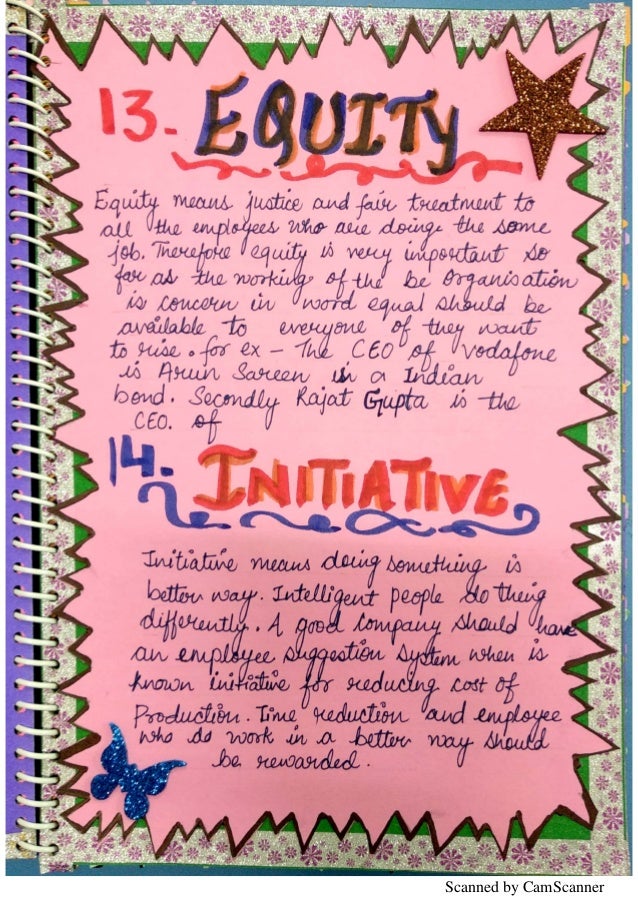 13. EQUITY
Equity means justice and fair treatment to
all the employees who are doing the same
job. Therefore equity is very important so
far as the working of the be Organisation
is concern in word equal should be
available to everyone of they want
to rise. for ex - The CEO of vodafone
is Arun Sareen is a Indian
bond. Secondly Rajat Gupta is the
CEO. of
14. INITIATIVE
Initiative means doing something is
better way. Intelligent people do theing
differently. A good company should have
an employee suggestion system when is
known initiative for reducing cost of
Production. Time reduction and employee
who do work in a better way should
be rewarded.
Scanned by CamScanner